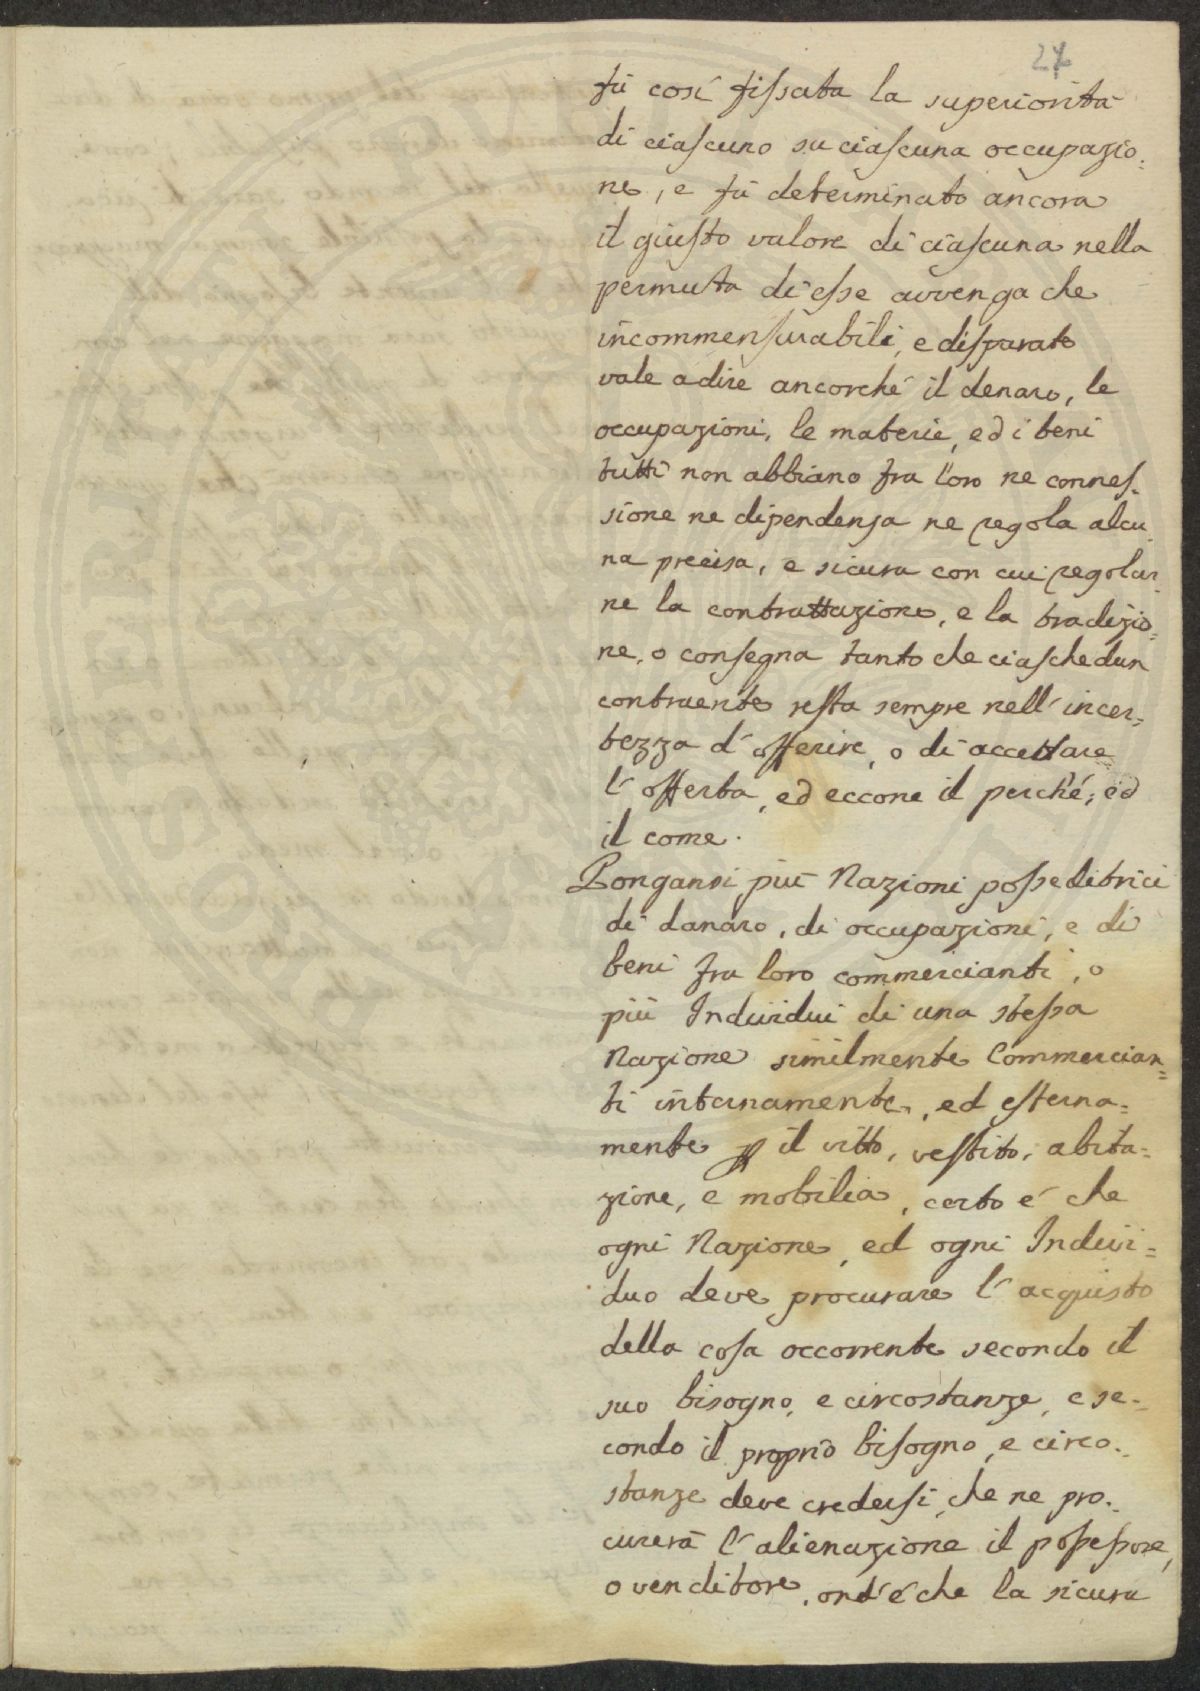 27
fù così fissata la superiorità
di ciascuno su ciascuna occupazio-
ne, e fù determinato ancora
il giusto valore di ciascuna nella
permuta di esse avvenga che
incommensurabili, e disparate
vale a dire ancorché il denaro, le
occupazioni, le materie, ed i beni
tutti non abbiano fra loro ne connes-
sione ne dipendenza ne regola alcu-
na precisa, e sicura con cui regolar-
ne la contrattazione, e la tradizio-
ne, o consegna tanto che ciaschedun
contraente resta sempre nell'incer-
tezza d'offerire, o di accettare
l'offerta, ed eccone il perché, ed
il come.
Pongansi più Nazioni posseditrici
di danaro, di occupazioni, e di
beni fra loro commercianti, o
più Individui di una stessa
Nazione similmente Commercian-
ti internamente, ed esterna-
mente p il vitto, vestito, abita-
zione, e mobilia, certo é che
ogni Nazione, ed ogni Indivi-
duo deve procurare l'acquisto
della cosa occorrente secondo il
suo bisogno, e circostanze, e se-
condo il proprio bisogno, e circo-
stanze deve credersi, che ne pro-
curerà l'alienazione il possessore,
o venditore, ond'é che la sicura